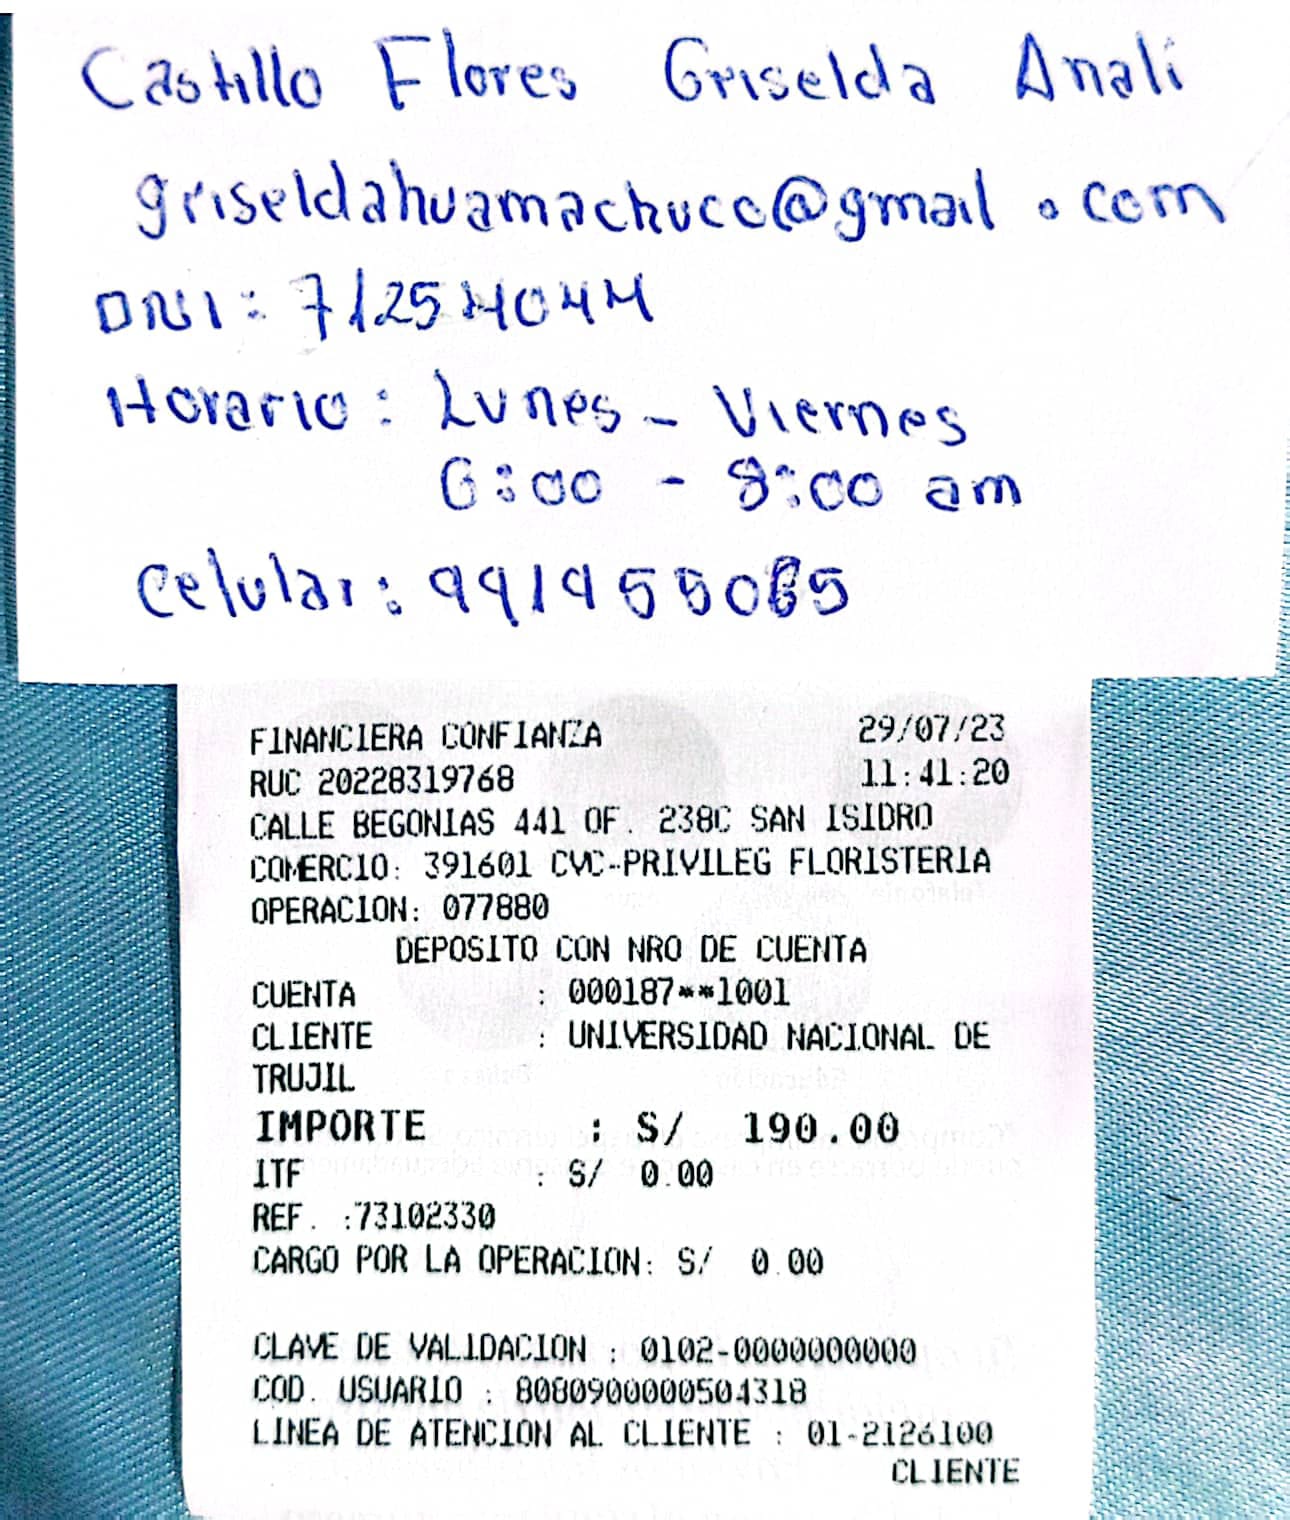 Castillo Flores Griselda Anali
griseldahuamachuco@gmail.com
DNI: 71254044
Horario: Lunes - Viernes
6:00 - 8:00 am
Celular:
FINANCIERA CONFIANZA 29/07/23
RUC 20228319768 11:41:20
CALLE BEGONIAS 441 OF 238C SAN ISIDRO
COMERCIO: 391601 CVC-PRIVILEG FLORISTERIA
OPERACION: 077880
DEPOSITO CON NRO DE CUENTA
CUENTA : 000187**1001
CLIENTE : UNIVERSIDAD NACIONAL DE
TRUJIL
IMPORTE : S/ 190.00
ITF : S/ 0.00
REF. :73102330
CARGO POR LA OPERACION: S/ 0.00
CLAVE DE VALIDACION : 0102-0000000000
COD. USUARIO : 8080900000504318
LINEA DE ATENCION AL CLIENTE : 01-2126100
CLIENTE